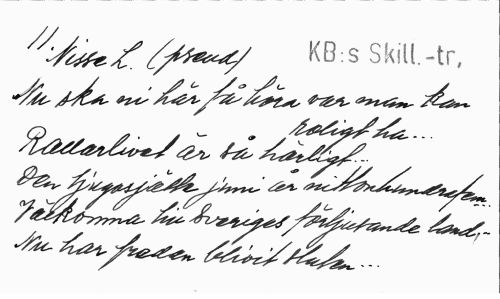 11. Nisse L. (pseud) KB:s Skill.-tr,
Nu ska ni här få höra var man kan
roligt ha...
Rallarlivet är så härligt...
Den tjugosjätte juni är nittonhundrafem...
Välkomna till Sveriges förtjusande land,-
Nu har freden blivit sluten...